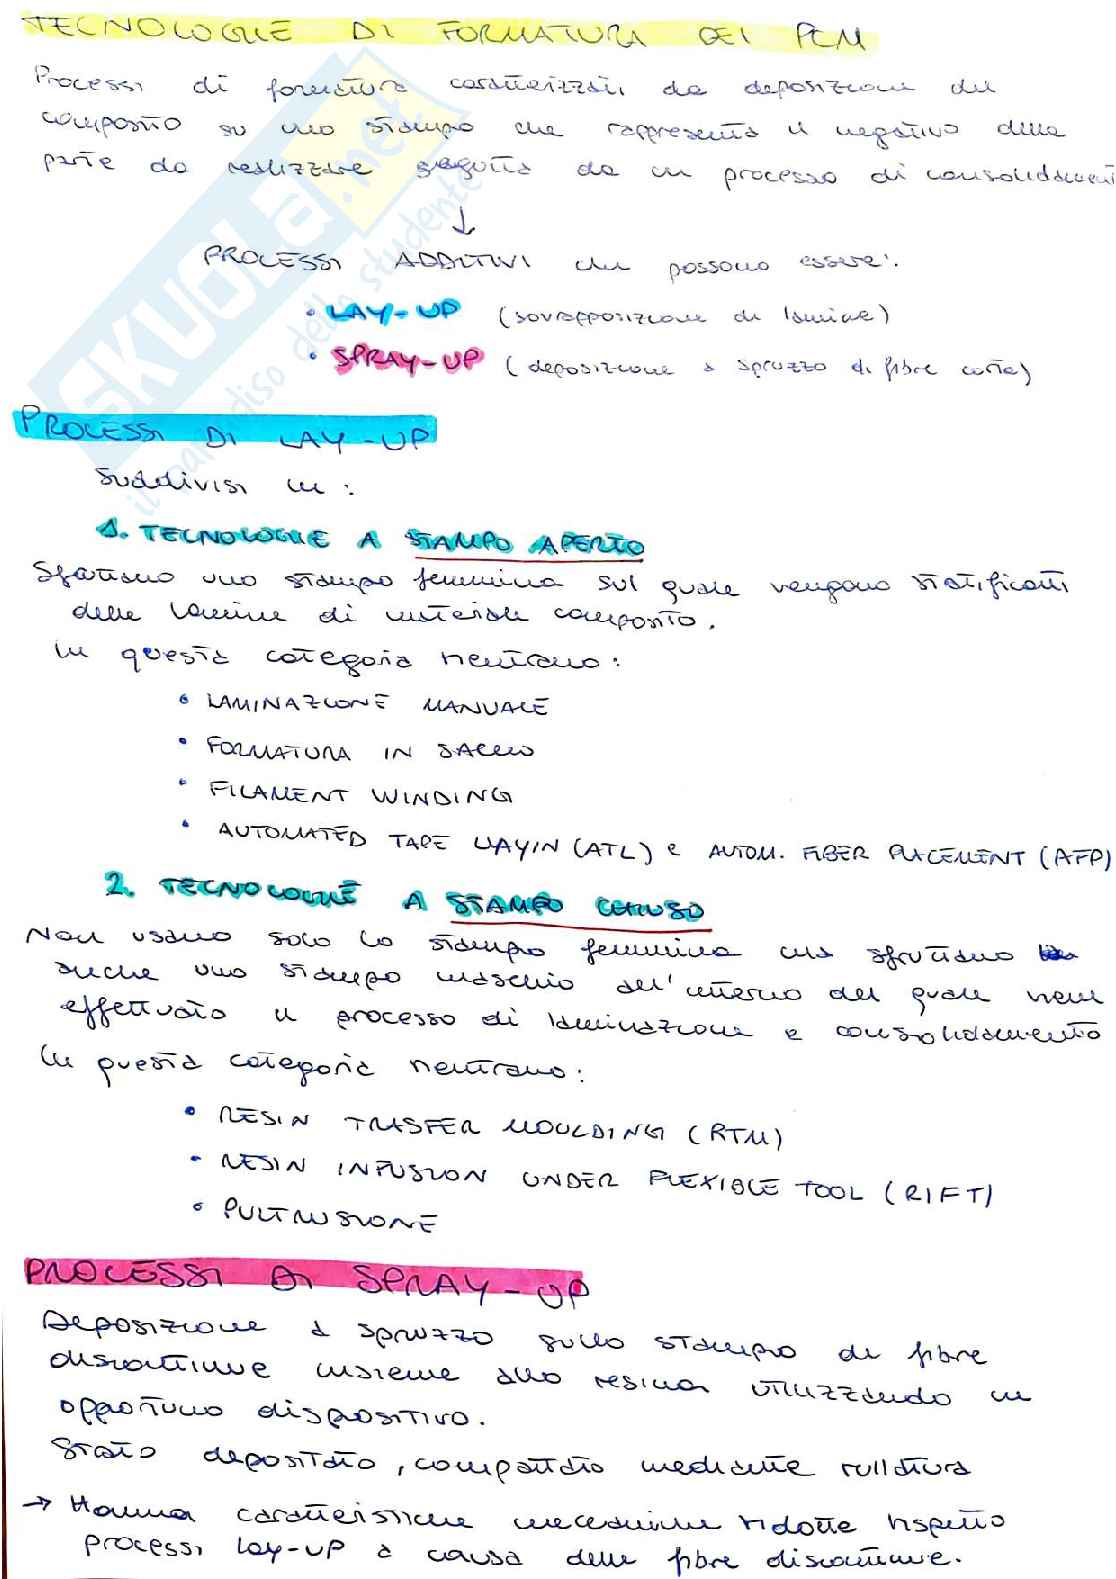 TECNOLOGIE DI FORMATURA DEI PCM
Processi di formatura caratterizzati da deposizione del
composito su uno stampo che rappresenta il negativo della
parte da realizzare seguita da un processo di consolidament
↓
PROCESSI ADDITIVI che possono essere:
• LAY-UP (sovrapposizione di lamine)
• SPRAY-UP (deposizione a spruzzo di fibre corte)
PROCESSI DI LAY-UP
Suddivisi in:
1. TECNOLOGIE A STAMPO APERTO
Sfruttano uno stampo femmina sul quale vengono stratificati
delle lamine di materiale composito.
In questa categoria rientrano:
• LAMINAZIONE MANUALE
• FORMATURA IN SACCO
• FILAMENT WINDING
• AUTOMATED TAPE LAYIN (ATL) e AUTOM. FIBER PLACEMENT (AFP)
2. TECNOLOGIE A STAMPO CHIUSO
Non usano solo lo stampo femmina ma sfruttano
anche uno stampo maschio all'interno del quale viene
effettuato il processo di laminazione e consolidamento
In questa categoria rientrano:
• RESIN TRASFER MOULDING (RTM)
• RESIN INFUSION UNDER FLEXIBLE TOOL (RIFT)
• PULTRUSIONE
PROCESSI DI SPRAY-UP
Deposizione a spruzzo sullo stampo di fibre
discontinue insieme alla resina utilizzando un
opportuno dispositivo.
Strato depositato, compattato mediante rullatura
→ Hanno caratteristiche meccaniche ridotte rispetto
processi lay-up a causa delle fibre discontinue.
SKUOLA.net
il paradiso dello studente